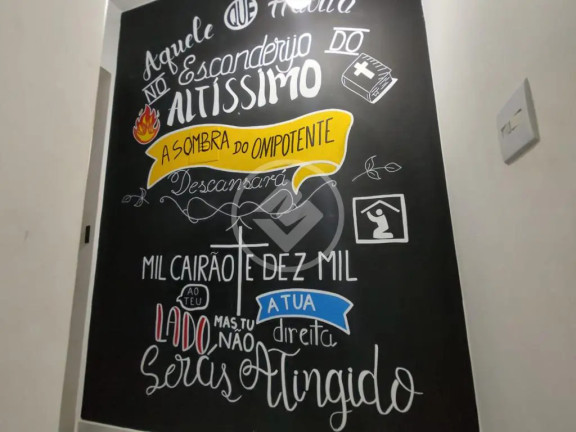 Aquele QUE Habita
NO Esconderijo DO
ALTÍSSIMO
A SOMBRA DO ONIPOTENTE
Descansará
MIL CAIRÃO E DEZ MIL
AO TEU LADO MAS TU NÃO A TUA direita
Serás Atingido